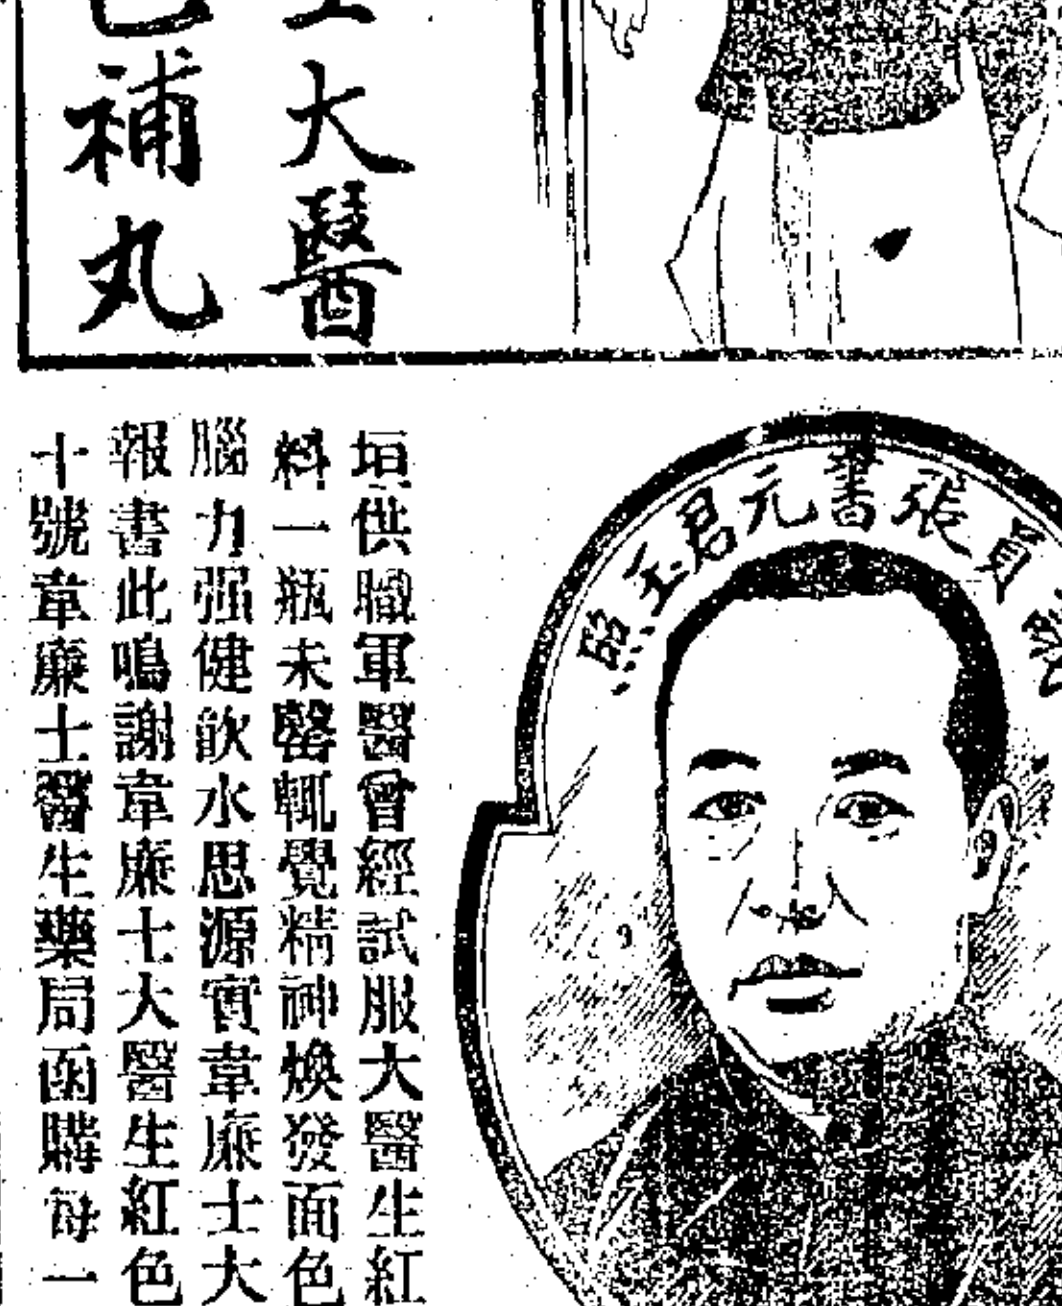 大醫
補丸
員張書元君玉照
垣供職軍醫曾經試服大醫生紅
料一瓶未罄輒覺精神煥發面色
腦力强健飲水思源實韋廉士大
報書此鳴謝韋廉士大醫生紅色
十號韋廉士醫生藥局函購每一